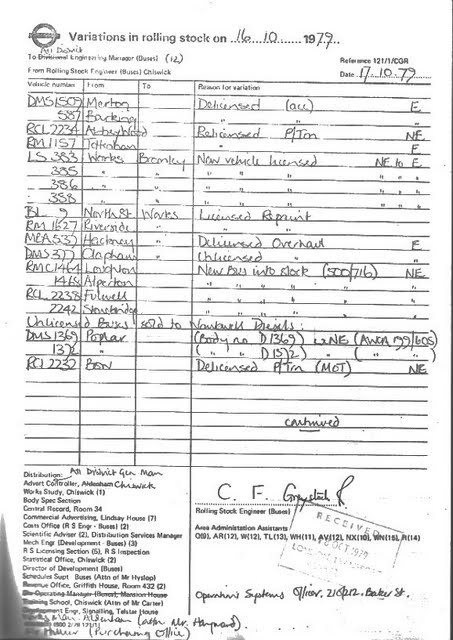 Variations in rolling stock on 16 . 10 1979.
All District
To Divisional Engineering Manager (Buses) (12)
Reference 121/1/CGR
From Rolling Stock Engineer (Buses) Chiswick
Date 17.10.79
Vehicle number From To Reason for variation
DMS1509 Merton Delicensed (acc) E
587 Barking " "
RCL2234 Abbeywood Relicensed P/Tm NE
RM1157 Tottenham " E
LS 383 Works Bromley New vehicle licensed NE to E
385 " " " " "
386 " " " " "
388 " " " " "
BL 9 North St Works Licensed Repaint
RM 1627 Riverside " " "
Hackney " Delicensed Overhaul E
DMS377 Clapham " Unlicensed "
RMC1464 Loughton New Bus into stock (500/716) NE
1468 Alperton " " " "
RCL 2238 Fulwell " " " "
2242 Stonebridge " " " "
Unlicensed Buses sold to Diesels :
DMS1369 Poplar (Body no D1369) U/NE
1372 " ( " " ) " ( " )
RCL 2232 Delicensed P/Tm (MOT) NE
continued
Distribution: All District Gen Man
Advert Controller, Aldenham Chiswick
Works Study, Chiswick (1)
Body Spec Section
Central Record, Room 34
Commercial Advertising, Lindsay House (7)
Costs Office (R S Engr - Buses) (2)
Scientific Adviser (2), Distribution Services Manager
Mech Engr (Development - Buses) (3)
R S Licensing Section (5), R S Inspection
Statistical Office, Chiswick (2)
Director of Development (Buses)
Schedules Supt Buses (Attn of Mr Hyslop)
Revenue Office, Griffith House, Room 432 (2)
Div Operating Manager (Buses), Mansion House
Training School, Chiswick (Attn of Mr Carter)
Development Engr, Signalling, Telstar House
Aldenham (attn Mr Haynard)
(Purchasing Office)
C. F.
Rolling Stock Engineer (Buses)
Area Administration Assistants
Q(9), AR(12), W(12), TL(13), WH(11), AV(12), NX(10), WN(16), R(14)
RECEIVED
OCT 1979
Operating Systems Officer, Baker St.